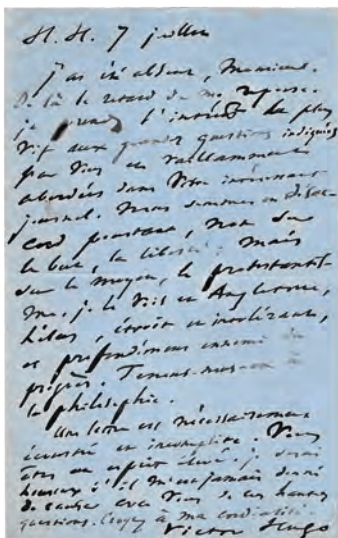 H. H. 7 juillet
J'ai été absent, Monsieur.
De là le retard de ma réponse.
je prends l'intérêt le plus
vif aux grandes questions indiquées
par vous et vaillamment
abordées dans votre intéressant
journal. Nous sommes en désac-
cord pourtant, non sur
le but, la liberté, mais
sur le moyen, le protestantis-
me. je le vois en Angleterre,
hélas, étroit et intolérant,
et profondément ennemi du
progrès. Tenons-nous en à
la philosophie.
Une lettre est nécessairement
écourtée et incomplète. Vous
êtes un esprit élevé. je serai
heureux s'il m'est jamais donné
de causer avec vous de ces hautes
questions. Croyez à ma cordialité.
Victor Hugo